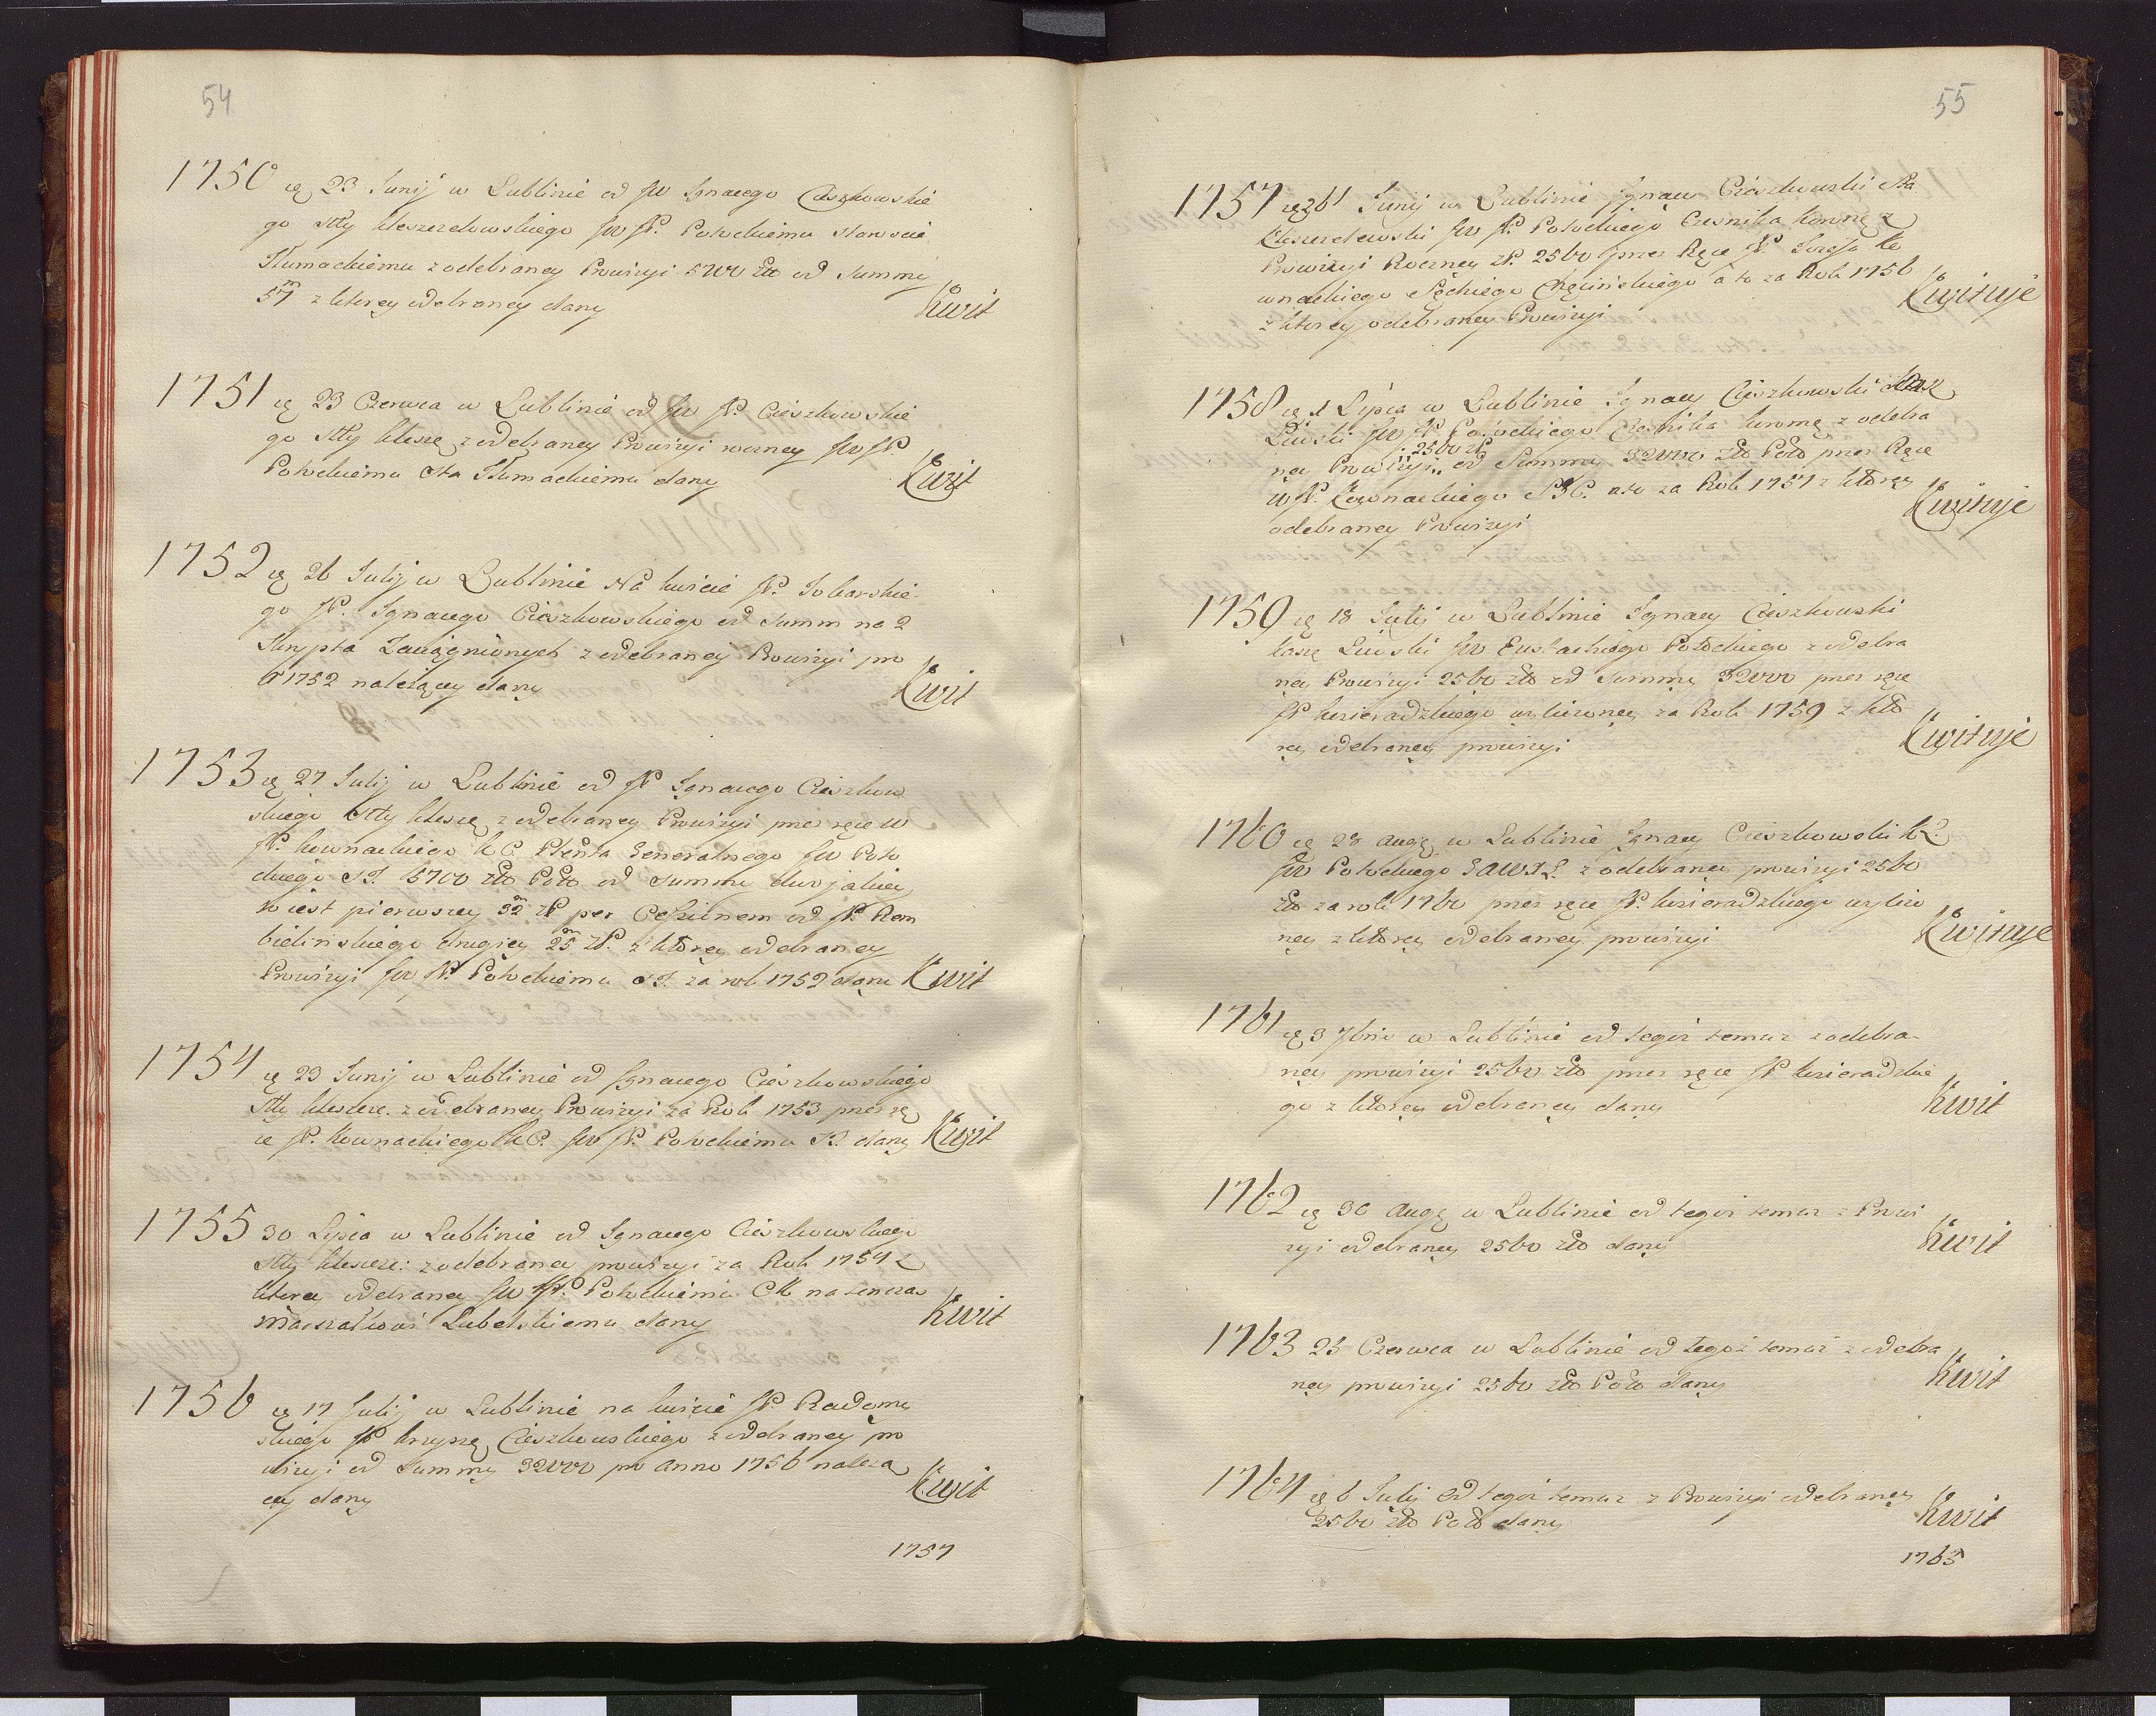 54
1750 ię 23 Junij w Lublinie od JW Ignacego Cieszkowskie
go Stty kleszczelowskiego JW JP. Potockiemu Staroscie
Tłumackiemu z odebraney Prowizyi 5700 Zło od Summy
57m z ktorey odebraney dany Kwit
1751 ię 23 Czerwca w Lublinie od JW JP. Cieszkowskie
go Stty kleszcz z odebraney Prowizyi roczney JW JP.
Potockiemu Sta Tłumackiemu dany Kwit
1752 ię 26 Julij w Lublinie Na kwicie JP.
go JP. Ignacego Cieszkowskiego od Summ na 2
Skrypta Zaciągnionych z odebraney Prowizyi pro
1752 należącey dany Kwit
1753 ię 27 Julij w Lublinie od JP Ignacego Cieszkow
skiego Stty kleszcz z odebraney Prowizyi przez ręce W
JP. kownackiego K C. Plenta Generalnego JW Poto
ckiego ST. 5700 Zło Polo od Summy dwojakiey
to iest pierwszey 32m ZP per Cessionem od JP. Rem
bielinskiego drugiey 25m ZP. z ktorey odebraney
Prowizyi JW JP Potockiemu ST. za rok 1752 dany Kwit
1754 ię 23 Junij w Lublinie od Ignacego Cieszkowskiego
Stty kleszcz. z odebraney Prowizyi za Rok 1753 przez rę
ce JP. Kownackiego K C. JW JP. Potockiemu ST. dany Kwit
1755 30 Lipca w Lublinie od Ignacego Cieszkowskiego
Stty kleszcz: z odebraney prowizyi za Rok 1754 z
ktorey odebraney JW JP. Potockiemu CK na tenczas
Marszałkowi Lubelskiemu dany Kwit
1756 ię 17 Julij w Lublinie na kwicie JP. Radoms
skiego JP Cieszkowskiego z odebraney pro
wizyi od Summy 32000 pro Anno 1756 należą
cey dany Kwit
1757
55
1757 ię 26 Junij w Lublinie Ignacy Cieszkowski Sta
Kleszczelewski JW JP. Potockiego Czesnika koronne z
Prowizyi Roczney ZP. 2560 przez Ręce JP Jozefa Ko
wnackiego Sędziego Chęcinskiego a to za Rok 1756
z ktorey odebraney Prowizyi Kwituje
1758 ię 1 Lipca w Lublinie Ignacy Cieszkowski Kasz
Liwski JW JP Potockiego Czesnika koronnę z odebra
ney Prowizyi 2560 ZP od Summy 32000 Zło Polo przez Ręce
W JP. Kownackiego a to za Rok 1757 z ktorey
odebraney Prowizyi Kwituje
1759 ię 18 Julij w Lublinie Ignacy Cieszkowski
kasz Liwski JW Eustachiego Potockiego z odebra
ney Prowizyi 2560 Zło od Summy 32000 przez ręce
JP kszieradzkiego wyliczoney za Rok 1759 z kto
rey odebraney prowizyi Kwituje
1760 ię 28 Aug w Lublinie Ignacy Cieszkowski K L.
JW Potockiego z odebraney prowizyi 2560
Zło za rok 1760 przez ręce JP. kszieradzkiego wyliczo
ney z ktorey odebraney prowizyi Kwituje
1761 ię 3 7bris w Lublinie od tegoż temuz z odebra-
ney prowizyi 2560 Zło przez ręce JP kszieradzkie
go z ktorey odebraney dany Kwit
1762 ię 30 Aug w Lublinie od tegoż temuz z Prowi
zyi odebraney 2560 Zło dany Kwit
1763 23 Czerwca w Lublinie od tegoż temuz z odebra
ney prowizyi 2560 Zło Polo dany Kwit
1764 ię 6 Julij Od tegoż temuz z Prowizyi odebraney
2560 Zło Polo dany Kwit
1765